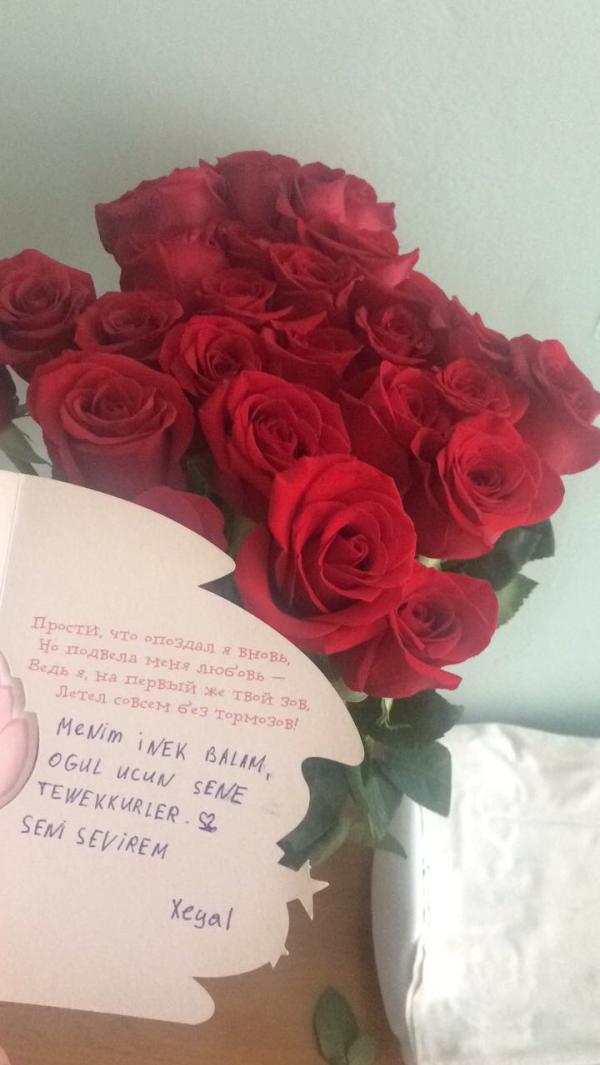 Прости, что опоздал я вновь,
Но подвела меня любовь —
Ведь я, на первый же твой зов,
Летел совсем без тормозов!
MENIM INEK BALAM,
OGUL UCUN SENE
TEWEKKURLER.
SENI SEVIREM
Xeyal